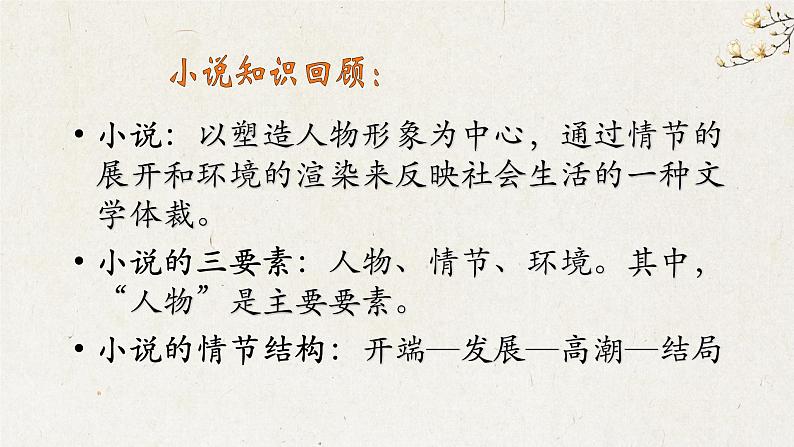 小说知识回顾：
• 小说：以塑造人物形象为中心，通过情节的
展开和环境的渲染来反映社会生活的一种文
学体裁。
• 小说的三要素：人物、情节、环境。其中，
“人物”是主要要素。
• 小说的情节结构：开端—发展—高潮—结局